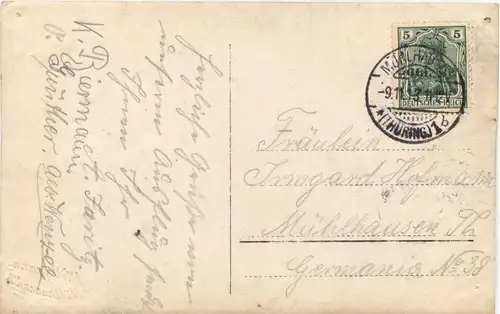 Herzliche Grüße von
unserem Ausflug sendet
Ihnen Ihr
K. Biermann
Günther
5 5
DEUTSCHES REICH
MÜHLHAUSEN
(THÜRING.) 1 b
Fräulein
Irmgard Hofmann
Mühlhausen Th
Germania No. 38